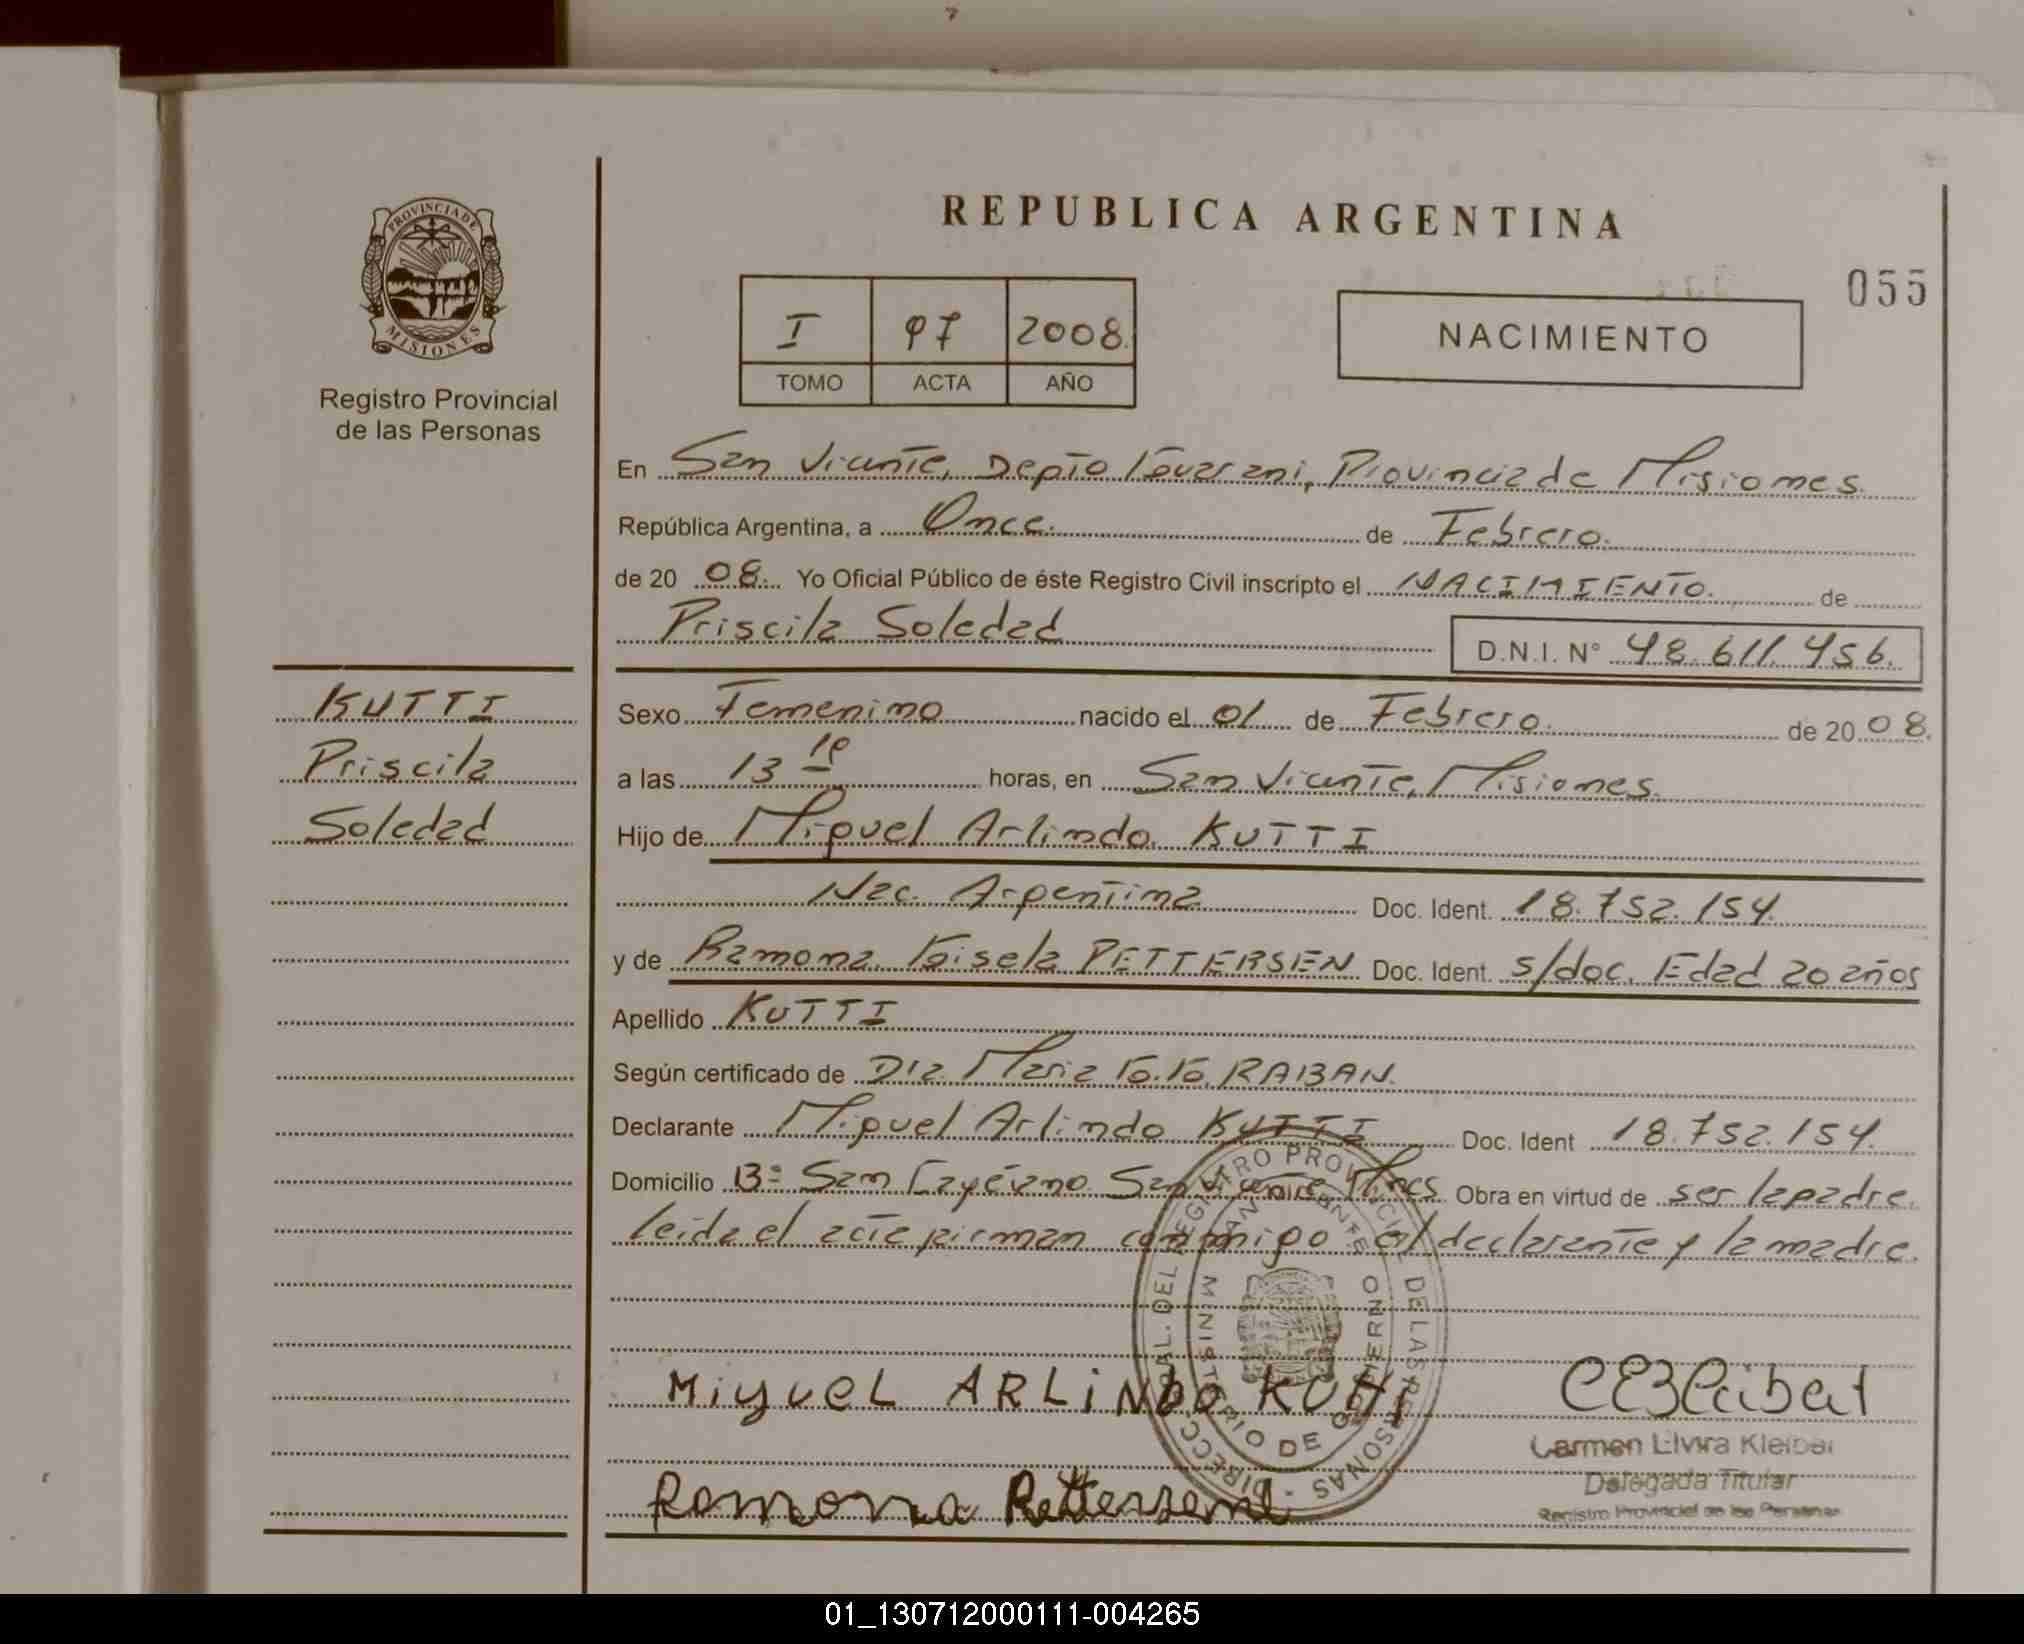 PROVINCIA DE
MISIONES
Registro Provincial
de las Personas
REPUBLICA ARGENTINA
055
I 97 2008.
TOMO ACTA AÑO
NACIMIENTO
En San Vicente, Depto Guarani, Provincia de Misiones
República Argentina, a Once. de Febrero.
de 20 08. Yo Oficial Público de éste Registro Civil inscripto el NACIMIENTO. de
Priscila Soledad
D.N.I. N° 48.611.456.
KUTTI
Priscila
Soledad
Sexo Femenino nacido el 01 de Febrero. de 20 08.
a las 13 10 horas, en San Vicente, Misiones.
Hijo de Miguel Arlindo. KUTTI
Nac. Argentina Doc. Ident. 18.752.154.
y de Ramona. Gisela PETTERSEN Doc. Ident. s/doc. Edad 20 años
Apellido KUTTI
Según certificado de Dra. Maria G. G. RABAN.
Declarante Miguel Arlindo KUTTI Doc. Ident 18.752.154.
Domicilio B° San Cayetano San Vicente Mnes Obra en virtud de ser la padre.
leida el acta firman conmigo el declarante y la madre.
DIRECC. GRAL. DEL REGISTRO PROVINCIAL DE LAS PERSONAS
MINISTERIO DE GOBIERNO
MiguEL ARLiNDO KUtti
Ramona Pettersen
Carmen Elvira Kleibert
Delegada Titular
Registro Provincial de las Personas
01_130712000111-004265